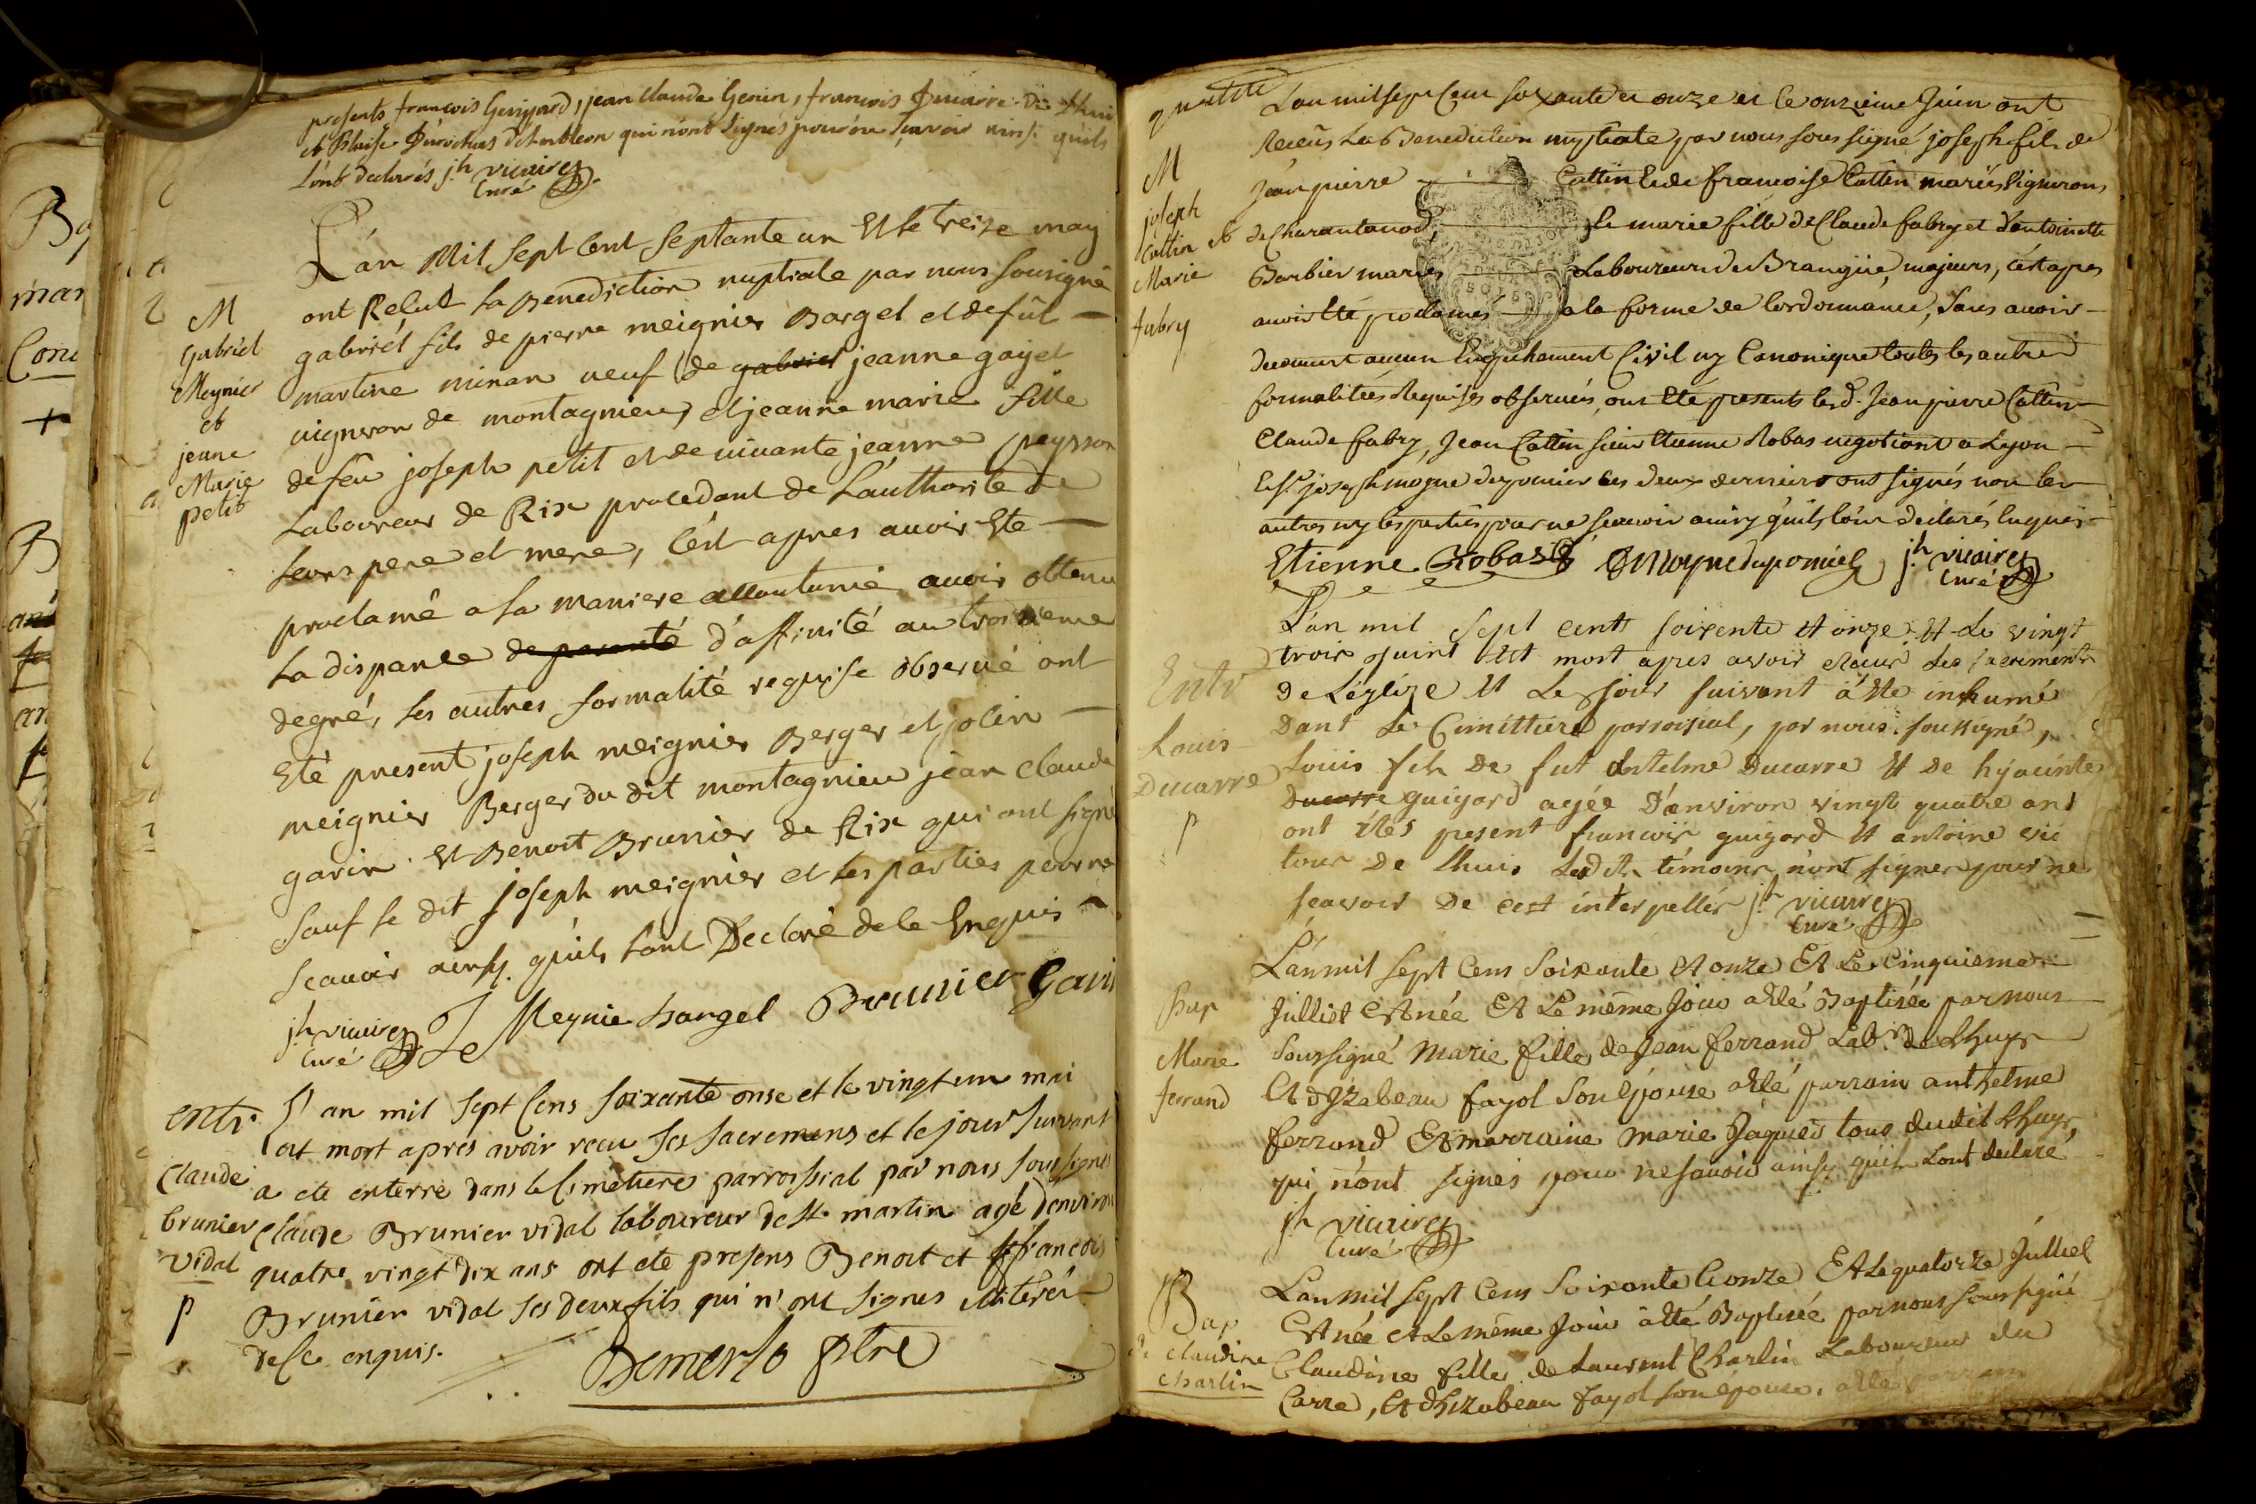 presents francois Guigard, jean claude Genin, francois
et Blaise d'Ambleon qui n'ont signés pour ne scavoir ainsi quils
l'ont declarés jh vicaire
Curé
L'an Mil sept cent septante un Et le treize may
M
ont Recut La Benediction nuptiale par nous sousigné
Gabriel
gabriel fils de pierre meignier Bargel et de fût
Meynier
martine minan veuf de gabriel jeanne gayet
et
vigneron de montagnieu, et jeanne marie fille
jeane
de feu joseph petit et de vivante jeanne peysson
Marie
petit
Laboureur de Rix procedant de L'authorité de
leurs pere et mere, C'est apres avoir Ete
proclamé a la maniere accoutumé avoir obtenu
La dispance de parenté d'affinité au troisieme
degré, les autres formalité requise observé ont
Eté present joseph meignier Berger et jolin
meignier Berger du dit montagnieu jean claude
garin Et Benoit Brunier de Rix qui ont signé
sauf le dit joseph meignier et les parties pour ne
scavoir ainsy qu'ils l'ont Declaré de le Enquis
jh vicaire
Curé
Meynie bargel Brunier Garin
entr.
L'an mil sept Cens soixante onse et le vingt un mai
est mort apres avoir recu ses sacremens et le jour suivant
Claude
a ete enterré dans le Cimetiere parroissial par nous soussigné
brunier
Claude Brunier vidal laboureur de St. martin agé d'environ
vidal
quatre vingt dix ans ont ete presens Benoit et francois
p
Brunier vidal ses deux fils qui n'ont signes illiterés
de ce enquis.
Demerlo ptre
L'an mil sept Cent soixante et onze et le onzieme Juin ont
Receus La Benediction nuptiale par nous sous signé joseph fils de
M
Jean pierre Cattin et de francoise Cattin mariés vignerons
joseph
Cattin et
de Charantanod, et marie fille de Claude fabry et d'antoinette
Marie
Barbier mariés Laboureurs de Brangüe majeurs, c'est apres
fabry
avoir eté proclamés a la forme de l'ordonnance, sans avoir
decouvert aucun Empechement Civil ny Canonique toutes les autres
formalitées Requises observées, ont Eté presents led. Jean pierre Cattin
Claude fabry, Jean Cattin sieur Etienne Robas negotiant a Lyon
Et sr joseph mogne depomier les deux derniers ont signés non les
autres ny les parties pour ne scavoir ainsy qu'ils l'ont declarés Enquis
Etienne Robas Moyne dupomier jh vicaire
Curé
L'an mil sept cents soixente et onze Et Le vingt
trois juint Est mort apres avoir receus Les sacrements
Entr
de L'églize Et Le jour suivant a été inhumé
Dans Le Cimittiere parroisial, par nous soussigné,
Louis
Louis fils De fut Antelme Ducarre Et De hyacinte
Ducarre
Ducarre guigard agée D'environ vingt quatre ans
p
ont étés present francois guigard Et antoine
tous De Lhuis Lesdits témoins n'ont signer pour ne
scavoir De cest interpellés jh vicaire
Curé
L'an mil sept Cens soixante et onze Et Le Cinquieme
Bap
Julliet est née Et Le même jour a été Baptisée par nous
Marie
soussigné Marie fille de Jean ferrand Labr. de Lhuys
ferrand
Et d'Izabeau fayol son épouse a été parrain anthelme
ferrand Et marraine Marie Jaquet tous dudit Lhuys,
qui n'ont signés pour ne savoir ainsy qu'ils L'ont declaré
jh vicaire
Curé
L'an mil sept Cens soixante et onze Et Le quatorze Julliet
Bap
Est née et Le même jour a été Baptisée par nous soussigné
de Claudine
Claudine fille de Laurent Charlin Laboureur du
charlin
Carre, Et d'Izabeau fayol son épouse, a été parrain